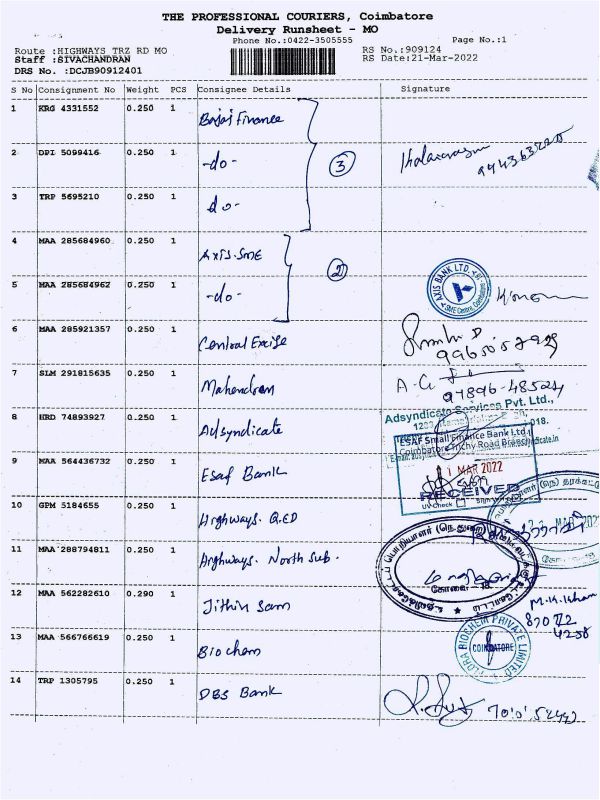 THE PROFESSIONAL COURIERS, Coimbatore
Delivery Runsheet - MO
Phone No.:0422-3505555
Page No.:1
Route :HIGHWAYS TRZ RD MO
RS No.:909124
Staff :SIVACHANDRAN
RS Date:21-Mar-2022
DRS No. :DCJB90912401
S No Consignment No Weight PCS Consignee Details Signature
1 KRG 4331552 0.250 1 Bajaj Finance
2 DPI 5099416 0.250 1 -do- 3
3 TRP 5695210 0.250 1 do-
4 MAA 285684960 0.250 1 AXIS.SME
5 MAA 285684962 0.250 1 -do- 2
AXIS BANK LTD. SME Centre, Coimbatore
6 MAA 285921357 0.250 1 Central Excise
7 SLM 291815635 0.250 1 Mahendran
97896-48524
8 HRD 74893927 0.250 1 Adsyndicate
Adsyndicate Services Pvt. Ltd.,
9 MAA 564436732 0.250 1 Esaf Bank
ESAF Small Finance Bank Ltd
Coimbatore Trichy Road Branch
MAR 2022
RECEIVED
10 GPM 5184655 0.250 1 Highways. Q.ED
11 MAA 288794811 0.250 1 Highways. North Sub.
கோவை
12 MAA 562282610 0.290 1 Jithin Sam
87072
4258
13 MAA 566766619 0.250 1 Biochem
FLORA BIOCHEM PRIVATE LIMITED
COIMBATORE
14 TRP 1305795 0.250 1 DBS Bank